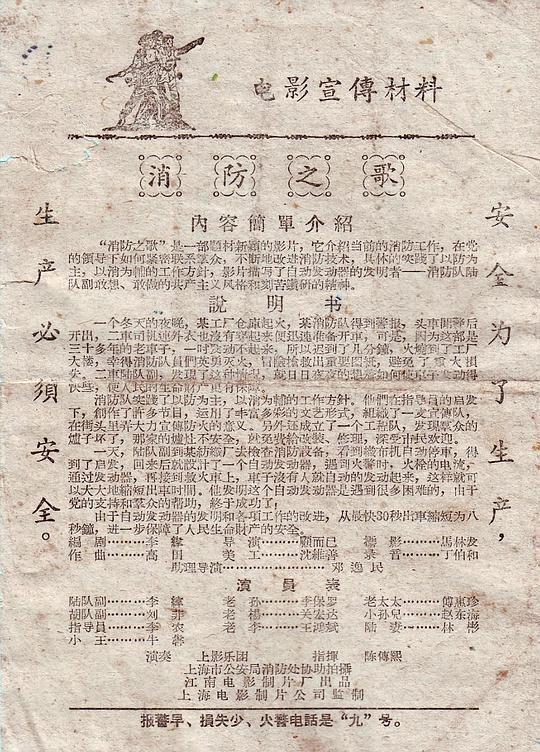 电影宣傳材料
消防之歌
安全为了生产，
生产必須安全。
內容簡單介紹
“消防之歌”是一部題材新穎的影片，它介紹当前的消防工作，在党
的領导下如何緊密联系羣众，不断地改进消防技术，具体的实踐了以防为
主，以消为輔的工作方針，影片描写了自动发动器的发明者——消防队陆
队副敢想、敢做的共产主义风格和刻苦鑽研的精神。
說明书
一个冬天的夜晚，某工厂仓庫起火，某消防队得到警报，头車開警后
开出，二車司机連外衣也沒有穿起来便迅速准备开車，可是，因为这部是
三十多年的老車子，一时发动不起来，所以迟到了几分鐘，火燒到了工厂
大楼，幸得消防队員們英勇灭火，冒險搶救出重要图紙，避免了重大損
失。二車陆队副，发現了这种情况，成日日夜夜的想着如何使車子发动得
快些，使人民的生命財产更有保障。
消防队实踐了以防为主，以消为輔的工作方針。他們在指导員的启发
下，創作了許多节目，运用了丰富多彩的文艺形式，組織了一支宣傳队，
在街头里弄大力宣傳防火的意义。另外还成立了一个工程队，发現羣众的
爐子坏了，那家的爐灶不安全，就免費給改裝、修理，深受市民欢迎。
一天，陆队副到某紡織厂去检查消防設备，看到織布机自动停車，得
到了启发，回来后就設計了一个自动发动器，遇到火警时，火栓的电流，
通过发动器，再接到救火車上，車子沒有人就自动的发动起来，这样就可
以大大地縮短出車时間。他发明这个自动发动器是遇到很多困难的，由于
党的支持和羣众的帮助，終于成功了！
由于自动发动器的发明和各項工作的改进，从最快30秒出車縮短为八
秒鐘，进一步保障了人民生命財产的安全。
編劇………李緯 导演………顧而已 攝影………馬林发
作曲………高田 美工………沈維善 录音………丁伯和
助理导演………………邓逸民
演員表
陆队副………李緯 老孙………李保罗 老太太………傅惠珍
胡队副………刘非 老楊………关宏达 小孙兒………赵东海
指导員………李农 老李………王鴻斌 陆妻………林彬
小王………牛犇
演奏 上影乐团 指揮 陈傳熙
上海市公安局消防处协助拍攝
江南电影制片厂出品
上海电影制片公司監制
报警早、損失少、火警电話是“九”号。